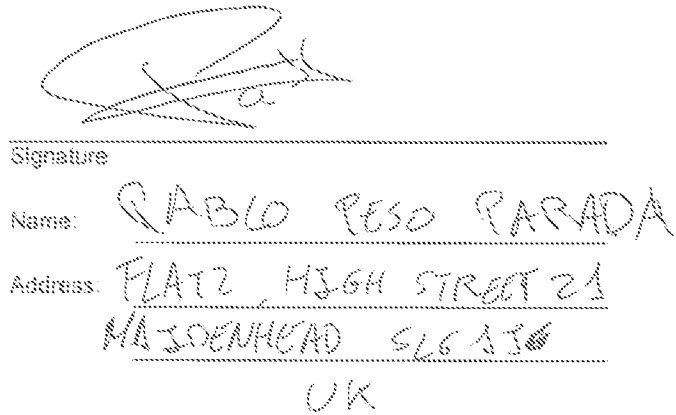 Signature
Name: PABLO PESO PARADA
Address: FLAT 2, HIGH STREET 21
MAIDENHEAD SL6 1J
UK